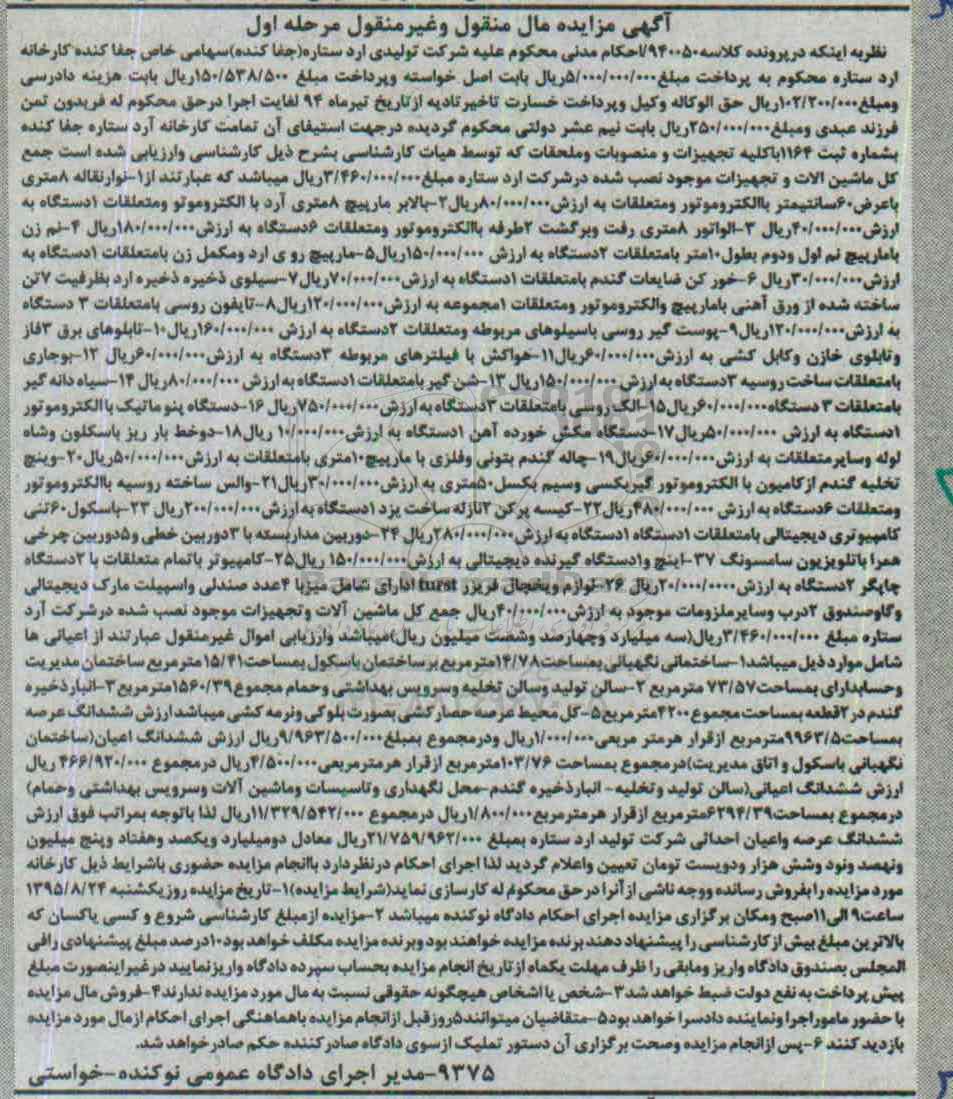 آگهی مزایده مال منقول وغیرمنقول مرحله اول
نظربه اینکه درپرونده کلاسه۹۴۰۰۵۰/احکام مدنی محکوم علیه شرکت تولیدی ارد ستاره(جفا کنده)سهامی خاص جفا کنده کارخانه
ارد ستاره محکوم به پرداخت مبلغ۵/۰۰۰/۰۰۰/۰۰۰ریال بابت اصل خواسته وپرداخت مبلغ ۱۵۰/۵۳۸/۵۰۰ریال بابت هزینه دادرسی
ومبلغ۱۰۲/۲۰۰/۰۰۰ریال حق الوکاله وکیل وپرداخت خسارت تاخیرتادیه ازتاریخ تیرماه ۹۴ لغایت اجرا درحق محکوم له فریدون تمن
فرزند عبدی ومبلغ۲۵۰/۰۰۰/۰۰۰ریال بابت نیم عشر دولتی محکوم گردیده درجهت استیفای آن تمامت کارخانه آرد ستاره جفا کنده
بشماره ثبت ۱۱۶۴باکلیه تجهیزات و منصوبات وملحقات که توسط هیات کارشناسی بشرح ذیل کارشناسی وارزیابی شده است جمع
کل ماشین الات و تجهیزات موجود نصب شده درشرکت ارد ستاره مبلغ۳/۴۶۰/۰۰۰/۰۰۰ریال میباشد که عبارتند از۱-نوارنقاله ۸متری
باعرض۶۰سانتیمتر باالکتروموتور ومتعلقات به ارزش۸۰/۰۰۰/۰۰۰ریال۲-بالابر مارپیچ ۸متری آرد با الکتروموتو ومتعلقات ۱دستگاه به
ارزش۴۰/۰۰۰/۰۰۰ریال ۳-الواتور ۸متری رفت وبرگشت ۲طرفه باالکتروموتور ومتعلقات ۶دستگاه به ارزش۱۸۰/۰۰۰/۰۰۰ریال ۴-نم زن
بامارپیچ نم اول ودوم بطول۱۰متر بامتعلقات ۲دستگاه به ارزش ۱۵۰/۰۰۰/۰۰۰ریال۵-مارپیچ رو ی ارد ومکمل زن بامتعلقات ۱دستگاه به
ارزش۳۰/۰۰۰/۰۰۰ریال ۶-خور کن ضایعات گندم بامتعلقات ۱دستگاه به ارزش۷۰/۰۰۰/۰۰۰ریال۷-سیلوی ذخیره ذخیره ارد بظرفیت ۷تن
ساخته شده از ورق آهنی بامارپیچ والکتروموتور ومتعلقات ۱مجموعه به ارزش۱۲۰/۰۰۰/۰۰۰ریال۸-تایفون روسی بامتعلقات ۳ دستگاه
به ارزش۱۲۰/۰۰۰/۰۰۰ریال۹-پوست گیر روسی باسیلوهای مربوطه ومتعلقات ۲دستگاه به ارزش ۱۶۰/۰۰۰/۰۰۰ریال۱۰-تابلوهای برق ۳فاز
وتابلوی خازن وکابل کشی به ارزش۶۰/۰۰۰/۰۰۰ریال۱۱-هواکش با فیلترهای مربوطه ۳دستگاه به ارزش۶۰/۰۰۰/۰۰۰ریال ۱۲-بوجاری
بامتعلقات ساخت روسیه ۳دستگاه به ارزش ۱۵۰/۰۰۰/۰۰۰ریال ۱۳-شن گیر بامتعلقات ۱دستگاه به ارزش ۸۰/۰۰۰/۰۰۰ریال ۱۴-سیاه دانه گیر
بامتعلقات ۳ دستگاه۶۰/۰۰۰/۰۰۰ریال۱۵-الک روسی بامتعلقات ۳دستگاه به ارزش۷۵۰/۰۰۰/۰۰۰ریال ۱۶-دستگاه پنو ماتیک باالکتروموتور
۱دستگاه به ارزش ۵۰/۰۰۰/۰۰۰ریال۱۷-دستگاه مکش خورده آهن ۱دستگاه به ارزش۱۰/۰۰۰/۰۰۰ ریال۱۸-دوخط بار ریز باسکلون وشاه
لوله وسایرمتعلقات به ارزش۶۰/۰۰۰/۰۰۰ریال۱۹-چاله گندم بتونی وفلزی با مارپیچ۱۰متری بامتعلقات به ارزش۵۰/۰۰۰/۰۰۰ریال۲۰-وینچ
تخلیه گندم ازکامیون با الکتروموتور گیربکسی وسیم بکسل۵۰متری به ارزش۳۰/۰۰۰/۰۰۰ریال۲۱-والس ساخته روسیه باالکتروموتور
ومتعلقات ۶دستگاه به ارزش ۴۸۰/۰۰۰/۰۰۰ریال۲۲-کیسه پرکن ۲نازله ساخت یزد ۱دستگاه به ارزش۲۰۰/۰۰۰/۰۰۰ریال ۲۳-باسکول۶۰تنی
کامپیوتری دیجیتالی بامتعلقات ۱دستگاه ۱دستگاه به ارزش۲۸۰/۰۰۰/۰۰۰ریال ۲۴-دوربین مداربسته با ۳دوربین خطی و۵دوربین چرخی
همرا باتلویزیون سامسونگ ۳۷-اینچ و۱دستگاه گیرنده دیجیتالی به ارزش۱۵۰/۰۰۰/۰۰۰ ریال۲۵-کامپیوتر باتمام متعلقات با ۲دستگاه
چاپگر ۲دستگاه به ارزش۲۰/۰۰۰/۰۰۰۰ریال ۲۶-لوازم ویخچال فریزر turst ادارای شامل میزبا ۴عدد صندلی واسپیلت مارک دیجیتالی
وگاوصندوق ۲درب وسایرملزومات موجود به ارزش۴۰/۰۰۰/۰۰۰ریال جمع کل ماشین آلات وتجهیزات موجود نصب شده درشرکت آرد
ستاره مبلغ ۳/۴۶۰/۰۰۰/۰۰۰ریال(سه میلیارد وچهارصد وشصت میلیون ریال)میباشد وارزیابی اموال غیرمنقول عبارتند از اعیانی ها
شامل موارد ذیل میباشد۱-ساختمانی نگهبانی بمساحت۱۴/۷۸مترمربع برساختمان باسکول بمساحت۱۵/۴۱مترمربع ساختمان مدیریت
وحسابدارای بمساحت۷۳/۵۷ مترمربع ۲-سالن تولید وسالن تخلیه وسرویس بهداشتی وحمام مجموع۱۵۶۰/۳۹مترمربع۳-انبارذخیره
گندم در۲قطعه بمساحت مجموع ۴۲۰۰مترمربع۵-کل محیط عرصه حصارکشی بصورت بلوکی ونرمه کشی میباشد ارزش ششدانگ عرصه
بمساحت۹۹۶۳/۵مترمربع ازقرار هرمتر مربعی۱/۰۰۰/۰۰۰ریال ودرمجموع بمبلغ۹/۹۶۳/۵۰۰/۰۰۰ریال ارزش ششدانگ اعیان(ساختمان
نگهبانی باسکول و اتاق مدیریت)درمجموع بمساحت ۱۰۳/۷۶مترمربع ازقرار هرمترمربعی۴/۵۰۰/۰۰۰ریال درمجموع ۴۶۶/۹۲۰/۰۰۰ ریال
ارزش ششدانگ اعیانی(سالن تولید وتخلیه- انبارذخیره گندم-محل نگهداری وتاسیسات وماشین آلات وسرویس بهداشتی وحمام)
درمجموع بمساحت۶۲۹۴/۳۹مترمربع ازقرار هرمترمربع۱/۸۰۰/۰۰۰ریال درمجموع ۱۱/۳۲۹/۵۴۲/۰۰۰ریال لذا باتوجه بمراتب فوق ارزش
ششدانگ عرصه واعیان احداثی شرکت تولید ارد ستاره بمبلغ ۲۱/۷۵۹/۹۶۲/۰۰۰ریال معادل دومیلیارد ویکصد وهفتاد وپنج میلیون
ونهصد ونود وشش هزار ودویست تومان تعیین واعلام گردید لذا اجرای احکام درنظردارد باانجام مزایده حضوری باشرایط ذیل کارخانه
مورد مزایده را بفروش رسانده ووجه ناشی از آنرا درحق محکوم له کارسازی نماید(شرایط مزایده)۱-تاریخ مزایده روزیکشنبه ۱۳۹۵/۸/۲۴
ساعت۹ الی۱۱صبح ومکان برگزاری مزایده اجرای احکام دادگاه نوکنده میباشد ۲-مزایده ازمبلغ کارشناسی شروع و کسی یاکسان که
بالاترین مبلغ بیش از کارشناسی را پیشنهاد دهند برنده مزایده خواهند بود وبرنده مزایده مکلف خواهد بود۱۰درصد مبلغ پیشنهادی رافی
المجلس بصندوق دادگاه واریز ومابقی را ظرف مهلت یکماه ازتاریخ انجام مزایده بحساب سپرده دادگاه واریزنمایید درغیراینصورت مبلغ
پیش پرداخت به نفع دولت ضبط خواهد شد۳-شخص یا اشخاص هیچگونه حقوقی نسبت به مال مورد مزایده ندارند۴-فروش مال مزایده
با حضور ماموراجرا ونماینده دادسرا خواهد بود۵-متقاضیان میتوانند۵روزقبل ازانجام مزایده باهماهنگی اجرای احکام ازمال مورد مزایده
بازدید کنند ۶-پس ازانجام مزایده وصحت برگزاری آن دستور تملیک ازسوی دادگاه صادرکننده حکم صادرخواهد شد.
۹۳۷۵-مدیر اجرای دادگاه عمومی نوکنده-خواستی